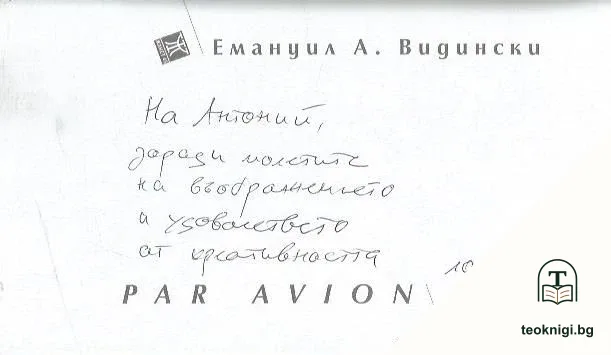 Емануил А. Видински
На Антоний,
заради полетите
на въображението
и удоволствието
от креативността
PAR AVION
teoknigi.bg